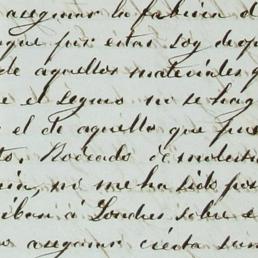 asegurar la fabrica d
que por estar soy de op
de aquellos materiales q
e el seguro no se hag
el de aquello que pu
to. Rodeado de molesti
ni me ha sido pos
iban á Londres sobre e
asegurar cierta sum